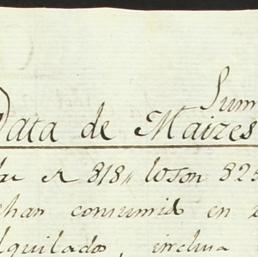 Sum
Data de Maizes
818,, loson 325
han consumid en
lquilados, inclusa